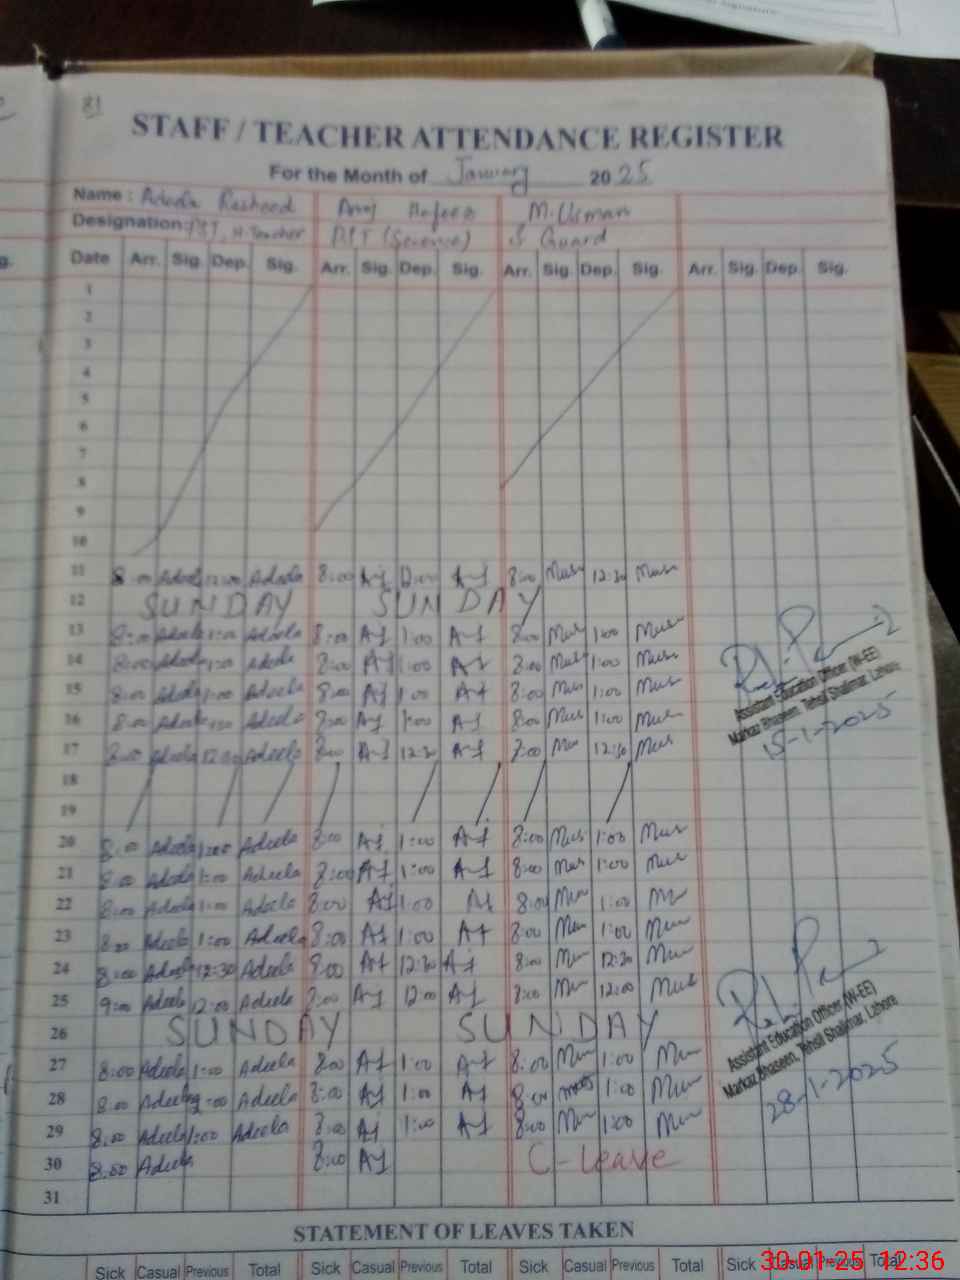 81
STAFF / TEACHER ATTENDANCE REGISTER
For the Month of January 2025
Name : Adeela Rasheed Hafeez M. Usman
Designation: PST, H.Teacher (Science) S Guard
Date Arr. Sig. Dep. Sig. Arr. Sig. Dep. Sig. Arr. Sig. Dep. Sig. Arr. Sig. Dep. Sig.
1
2
3
4
5
6
7
8
9
10
11 8:00 Adeela 12:00 Adeela 8:00 AJ 12:00 AJ 8:00 Mus 12:30 Mus
12 SUNDAY SUNDAY
13 8:00 Adeela 1:00 Adeela 8:00 AJ 1:00 AJ 8:00 Mus 1:00 Mus
14 8:00 Adeela 1:00 Adeela 8:00 AJ 1:00 AJ 8:00 Mus 1:00 Mus
15 8:00 Adeela 1:00 Adeela 8:00 AJ 1:00 AJ 8:00 Mus 1:00 Mus
16 8:00 Adeela 1:00 Adeela 8:00 AJ 1:00 AJ 8:00 Mus 1:00 Mus
17 8:00 Adeela 12:30 Adeela 8:00 AJ 12:30 AJ 8:00 Mus 12:30 Mus
Assistant Education Officer (W-EE)
Markaz Bhaseen, Tehsil Shalimar, Lahore
15-1-2025
18
19
20 8:00 Adeela 1:00 Adeela 8:00 AJ 1:00 AJ 8:00 Mus 1:00 Mus
21 8:00 Adeela 1:00 Adeela 8:00 AJ 1:00 AJ 8:00 Mus 1:00 Mus
22 8:00 Adeela 1:00 Adeela 8:00 AJ 1:00 AJ 8:00 Mus 1:00 Mus
23 8:00 Adeela 1:00 Adeela 8:00 AJ 1:00 AJ 8:00 Mus 1:00 Mus
24 8:00 Adeela 12:30 Adeela 8:00 AJ 12:30 AJ 8:00 Mus 12:30 Mus
25 9:00 Adeela 12:00 Adeela 8:00 AJ 12:00 AJ 8:00 Mus 12:00 Mus
26 SUNDAY SUNDAY
27 8:00 Adeela 1:00 Adeela 8:00 AJ 1:00 AJ 8:00 Mus 1:00 Mus
28 8:00 Adeela 8:00 AJ 1:00 AJ 8:00 Mus 1:00 Mus
29 8:00 Adeela 1:00 Adeela 8:00 AJ 1:00 AJ 8:00 Mus 1:00 Mus
30 8:00 Adeela 8:00 AJ C-Leave
31
Assistant Education Officer (W-EE)
Markaz Bhaseen, Tehsil Shalimar, Lahore
28-1-2025
STATEMENT OF LEAVES TAKEN
Sick Casual Previous Total Sick Casual Previous Total Sick Casual Previous Total Sick Casual Previous Total
30-01-25 12:36